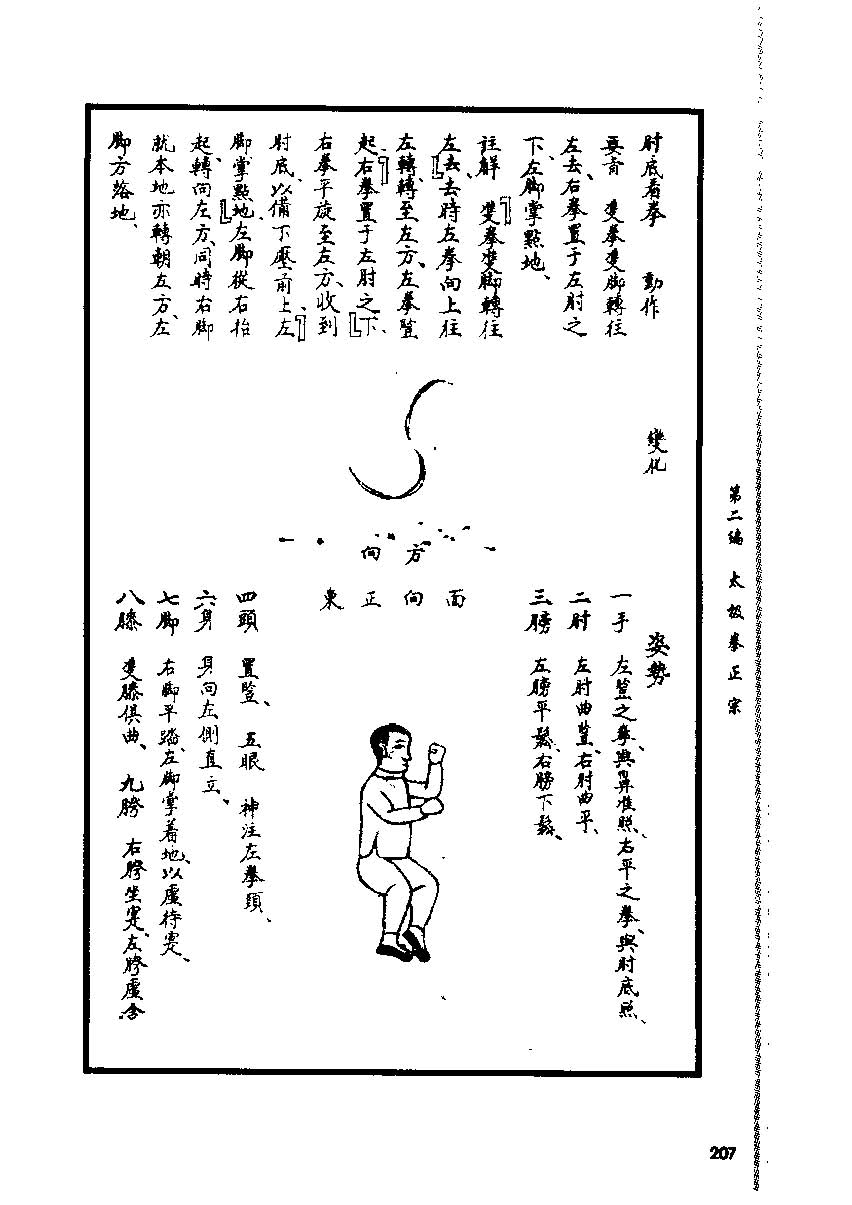 肘底看拳　動作
要言　雙拳雙脚轉往
左去、右拳置于左肘之
下、左脚掌點地、
註解　『雙拳雙脚轉往
左去、』去時左拳向上往
左轉、轉至左方、『左拳豎
起、右拳置于左肘之下、』
右拳平旋至左方、收到
肘底、以備下壓前上、『左
脚掌點地、』左脚從右抬
起、轉向左方、同時右脚
就本地亦轉朝左方、左
脚方落地、
變化
方向
面向正東
姿勢
一手　左豎之拳、與鼻准照、右平之拳、與肘底照、
二肘　左肘曲豎、右肘曲平、
三膀　左膀平鬆、右膀下鬆、
四頭　置豎、五眼　神注左拳頭、
六身　身向左側直立、
七脚　右脚平踏、左脚掌着地、以虛待寔、
八膝　雙膝俱曲、九胯　右胯坐寔、左胯虛含
第二編　太极拳正宗
207